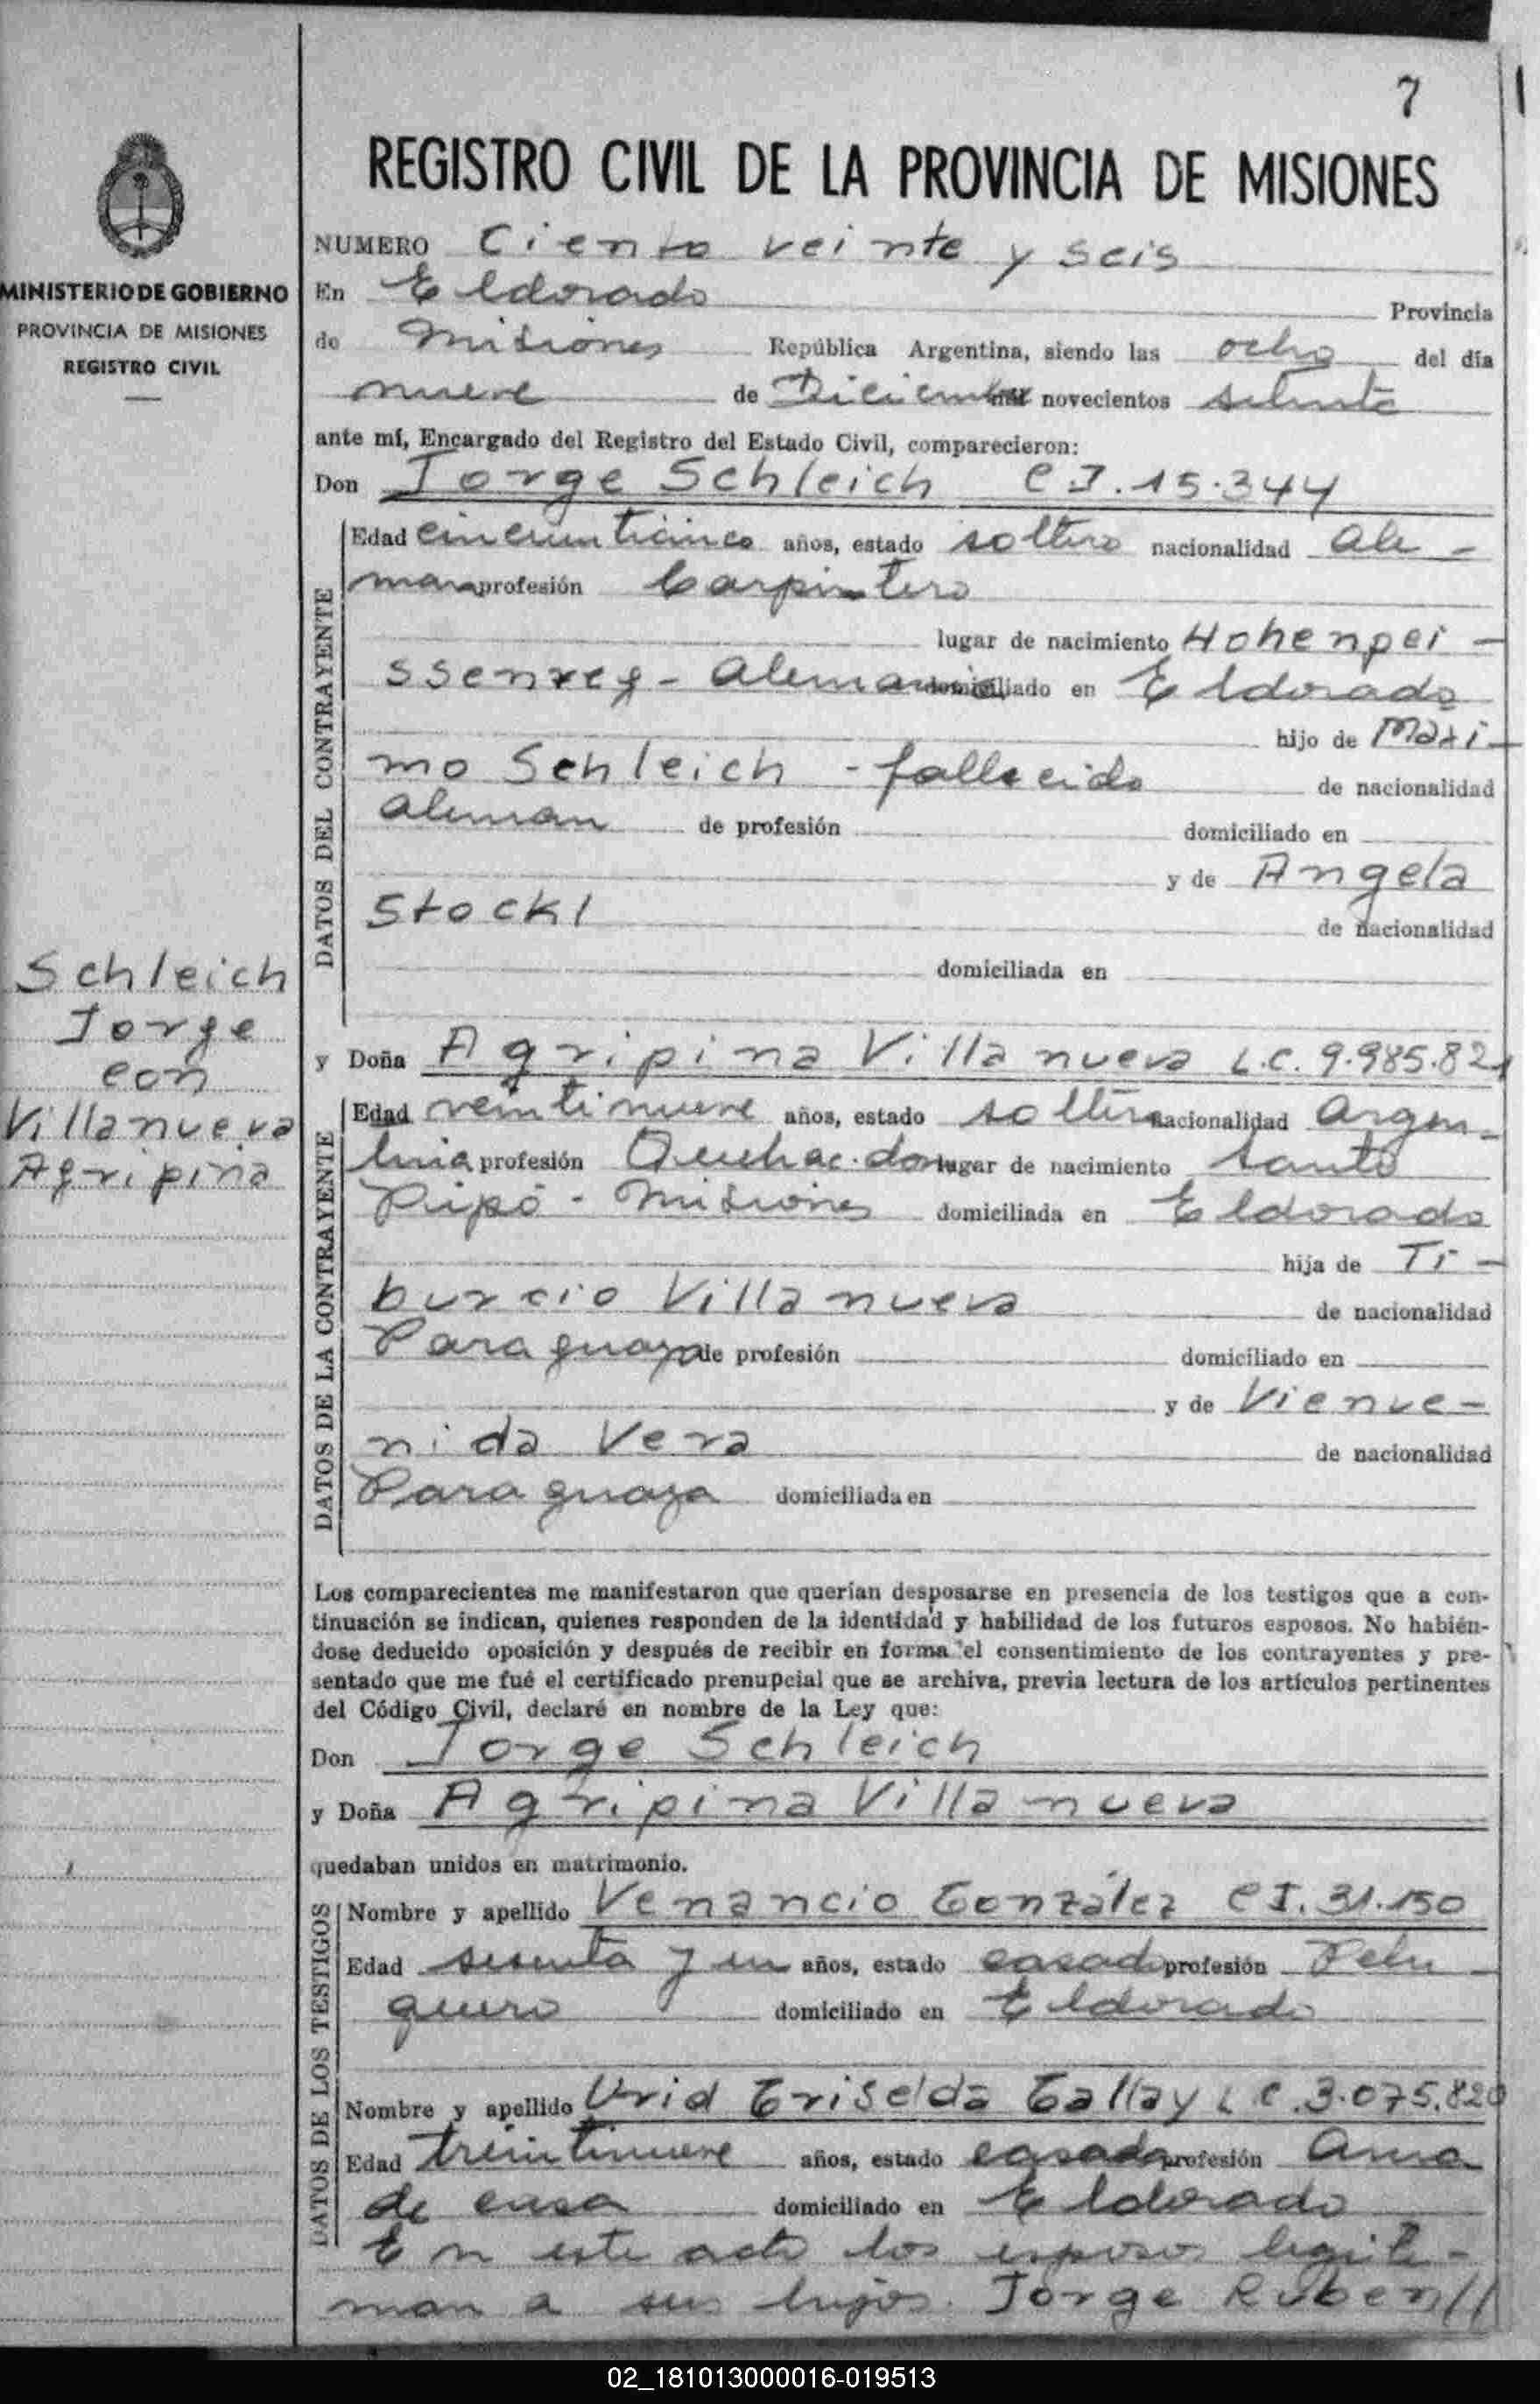 7
REGISTRO CIVIL DE LA PROVINCIA DE MISIONES
MINISTERIO DE GOBIERNO
PROVINCIA DE MISIONES
REGISTRO CIVIL
NUMERO Ciento veinte y seis
En Eldorado Provincia
de Misiones República Argentina, siendo las ocho del día
nueve de Diciembre mil novecientos setenta
ante mí, Encargado del Registro del Estado Civil, comparecieron:
Don Jorge Schleich C I. 15.344
DATOS DEL CONTRAYENTE
Edad cincuenticinco años, estado soltero nacionalidad ale-
man profesión Carpintero
lugar de nacimiento Hohenpei-
ssenreg - Alemania domiciliado en Eldorado
hijo de Maxi-
mo Schleich - fallecido de nacionalidad
aleman de profesión domiciliado en
y de Angela
Stockl de nacionalidad
domiciliada en
Schleich
Jorge
con
Villanueva
Agripina
y Doña Agripina Villanueva L.C. 9.985.821
DATOS DE LA CONTRAYENTE
Edad veintinueve años, estado soltera nacionalidad argen-
tina profesión Quehac. dom lugar de nacimiento Santo
Pipó - Misiones domiciliada en Eldorado
hija de Ti-
burcio Villanueva de nacionalidad
Paraguaya de profesión domiciliado en
y de Vienve-
nida Vera de nacionalidad
Paraguaya domiciliada en
Los comparecientes me manifestaron que querían desposarse en presencia de los testigos que a con-
tinuación se indican, quienes responden de la identidad y habilidad de los futuros esposos. No habién-
dose deducido oposición y después de recibir en forma el consentimiento de los contrayentes y pre-
sentado que me fué el certificado prenupcial que se archiva, previa lectura de los artículos pertinentes
del Código Civil, declaré en nombre de la Ley que:
Don Jorge Schleich
y Doña Agripina Villanueva
quedaban unidos en matrimonio.
DATOS DE LOS TESTIGOS
Nombre y apellido Venancio González C I. 31.150
Edad sesenta y un años, estado casado profesión Pelu-
quero domiciliado en Eldorado
Nombre y apellido Urid Griselda Gallay L C. 3.075.820
Edad treintinueve años, estado casada profesión Ama
de casa domiciliado en Eldorado
En este acto los esposos legiti-
man a sus hijos. Jorge Ruben//
02_181013000016-019513